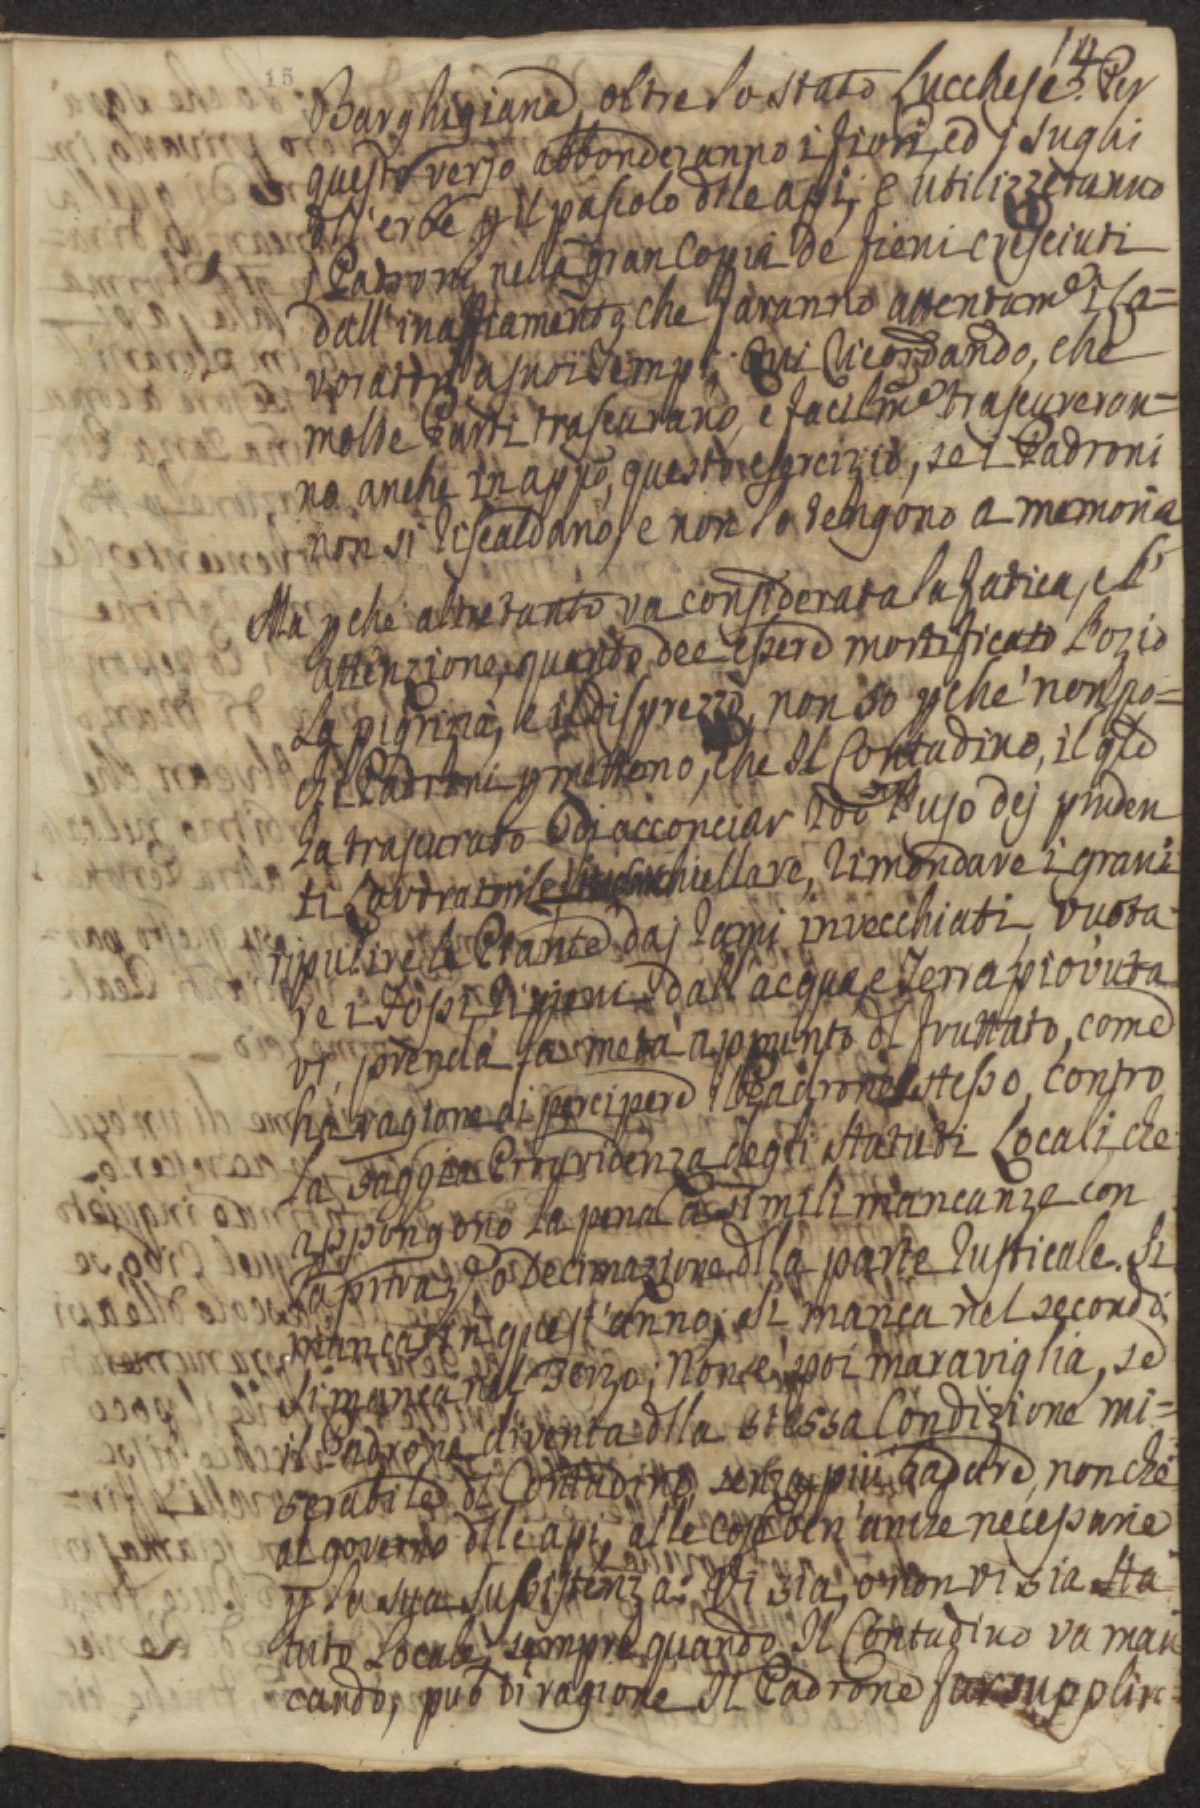 14
15
Barghigiana, oltre lo stato Lucchese. Per
questo verso abbonderanno i fiori, ed i sughi
dll'erbe p il pascolo dlle api, e utilizzeranno
i Padroni nella gran Copia de fieni cresciuti
dall'inaffiamento, che faranno attentamte i La=
voratri a suoi tempi; Qui ricordando, che
molte Parti trascurano, e facilmte trascureran=
no anche in appo, questo esercizio, se i Padroni
non si riscaldano, e non lo tengono a memoria
Ma pche altretanto va considerata la fatica, e l'
attenzione, quando dee essere mortificato l'ozio
la pigrizia, e il disprezzo, non so pche' non po=
chi Padroni pmettono, che Il Contadino, il qle
ha trascurato di acconciar sodo l'uso dej pruden
ti Lavoratori, rimondare i grani
ripulire le Piante daj rami invecchiati, vuota=
re i Fossi ripieni dall'acqua, e Terra piovuta
vi, prenda la metà appunto dl fruttato, come
há ragione di percipere il Padrone stesso, contro
la saggia Providenza degli Statuti Locali, che
appongono la pena à simili mancanze con
la privaze, o Decimazione dlla parte rusticale. Si
manca in quest'anno; si manca nel secondo,
si manca nel Terzo; Non è poi maraviglia, se
il Padrone diventa dlla stessa Condizione mi=
serabile dl Contadino, senza più badare, non che
al governo dlle api, alle cose ben'anche necessarie
p la sua sussistenza. Vi sia, o non vi sia sta
tuto Locale, sempre quando Il Contadino va man
cando, può di ragione Il Padrone far supplire